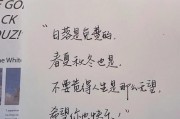 E GO.
CK
OUZI!
he White
“日落是免费的，
春夏秋冬也是，
不要觉得人生是那么无望，
希望你也快乐，”